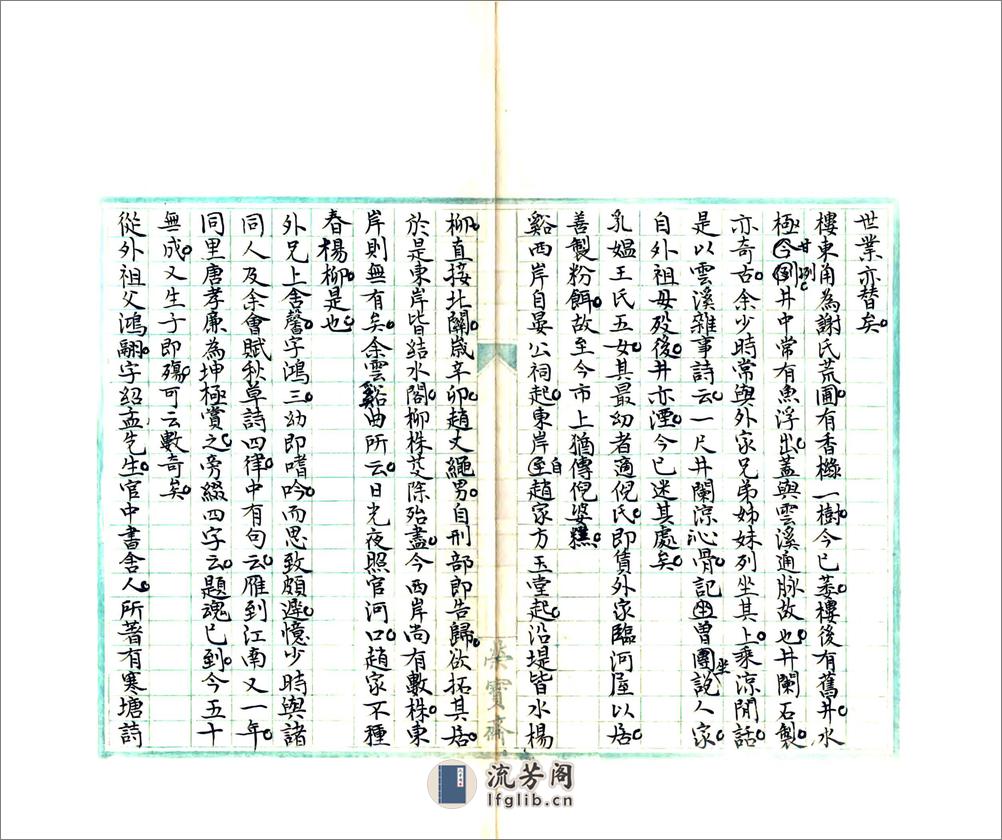 世業亦替矣。
樓東角為謝氏荒圃有香櫞一樹。今已萎。樓後有舊井。水
極甘冽。井中常有魚浮出。蓋與雲溪通脉故也。井闌石製。
亦奇古。余少時常與外家兄弟姊妹列坐其上。乘涼閒話。
是以雲溪雜事詩云。一尺井闌涼沁骨。記曾團坐說人家。
自外祖母歿後。井亦湮。今已迷其處矣。
乳媼王氏五女。其最幼者適倪氏。即賃外家臨河屋以居。
善製粉餌。故至今市上猶傳倪婆糕。
谿西岸自晏公祠起。東岸自趙家方玉堂起。沿堤皆水楊
柳。直接北關。歲辛卯。趙丈繩男。自刑部郎告歸。欲拓其居。
於是東岸皆結水閣。柳株芟除殆盡。今西岸尚有數株。東
岸則無有矣。余雲谿曲所云。日光夜照官河口。趙家不種
春楊柳。是也。
外兄上舍馨。字鴻三。幼即嗜吟。而思致頗遲。憶少時與諸
同人及余會賦秋草詩四律。中有句云。雁到江南又一年。
同里唐孝廉為坤極賞之。旁綴四字云。題魂已到。今五十
無成。又生子即殤。可云數奇矣。
從外祖父鴻翮。字紹孟先生。官中書舍人。所著有寒塘詩
榮寶齋
流芳阁
lfglib.cn